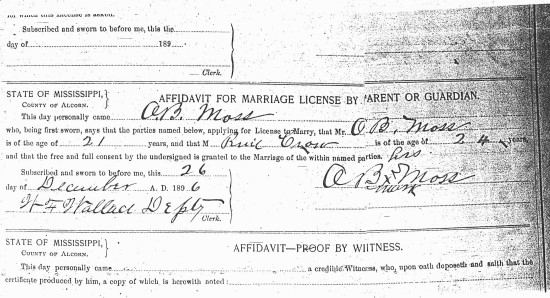 for which this License is asked.
Subscribed and sworn to before me, this the
day of 189
Clerk.
STATE OF MISSISSIPPI,
COUNTY OF ALCORN.
AFFIDAVIT FOR MARRIAGE LICENSE BY PARENT OR GUARDIAN.
This day personally came O B. Moss
who, being first sworn, says that the parties named below, applying for License to Marry, that Mr. O B. Moss
is of the age of 21 years, and that M Crow is of the age of 24 years,
and that the free and full consent by the undersigned is granted to the Marriage of the within named parties.
his
Subscribed and sworn to before me, this 26
O B x Moss
mark
day of December A. D. 1896
W F Wallace Depty
Clerk.
STATE OF MISSISSIPPI,
COUNTY OF ALCORN.
AFFIDAVIT—PROOF BY WIITNESS.
This day personally came a credible Witness, who, upon oath deposeth and saith that the
certificate produced by him, a copy of which is herewith noted :